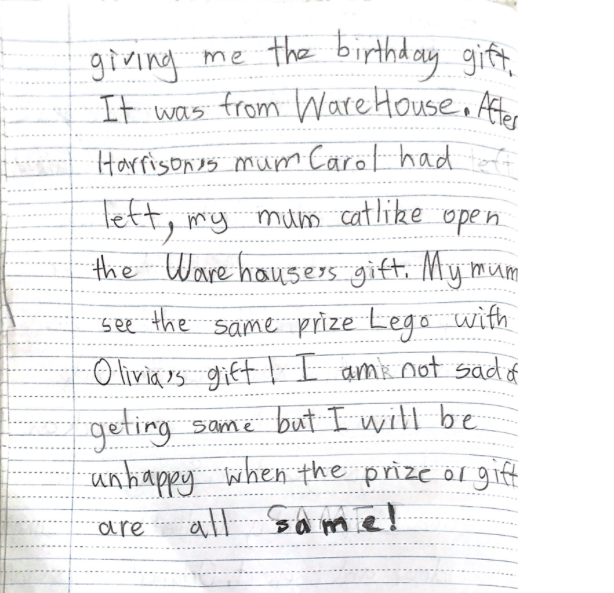 giving me the birthday gift.
It was from WareHouse. After
Harrison,s mum Carol had
left, my mum catlike open
the Warehouse,s gift. My mum
see the same prize Lego with
Olivia,s gift! I am not sad of
geting same but I will be
unhappy when the prize or gift
are all same!